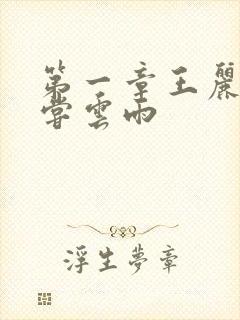 第一章王麗
嘗雲雨
浮生夢章